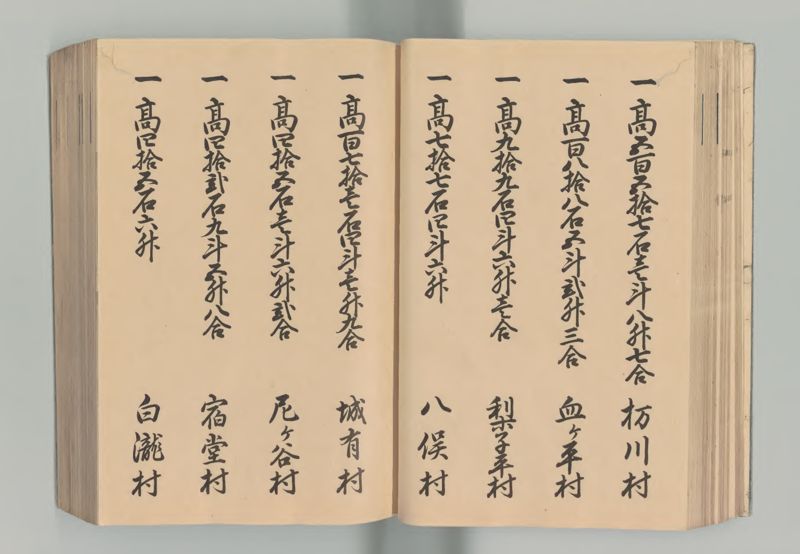 一 髙五百五拾七石壱斗八升七合 枋川村
一 髙百八拾八石五斗弐升三合 血ヶ平村
一 髙九拾九石四斗六升壱合 梨子平村
一 髙七拾七石四斗六升 八俣村
一 髙百七拾壱石四斗壱升九合 城有村
一 髙四拾五石壱斗六升弐合 尼ヶ谷村
一 髙四拾弐石九斗五升八合 宿堂村
一 髙四拾五石六升 白瀧村